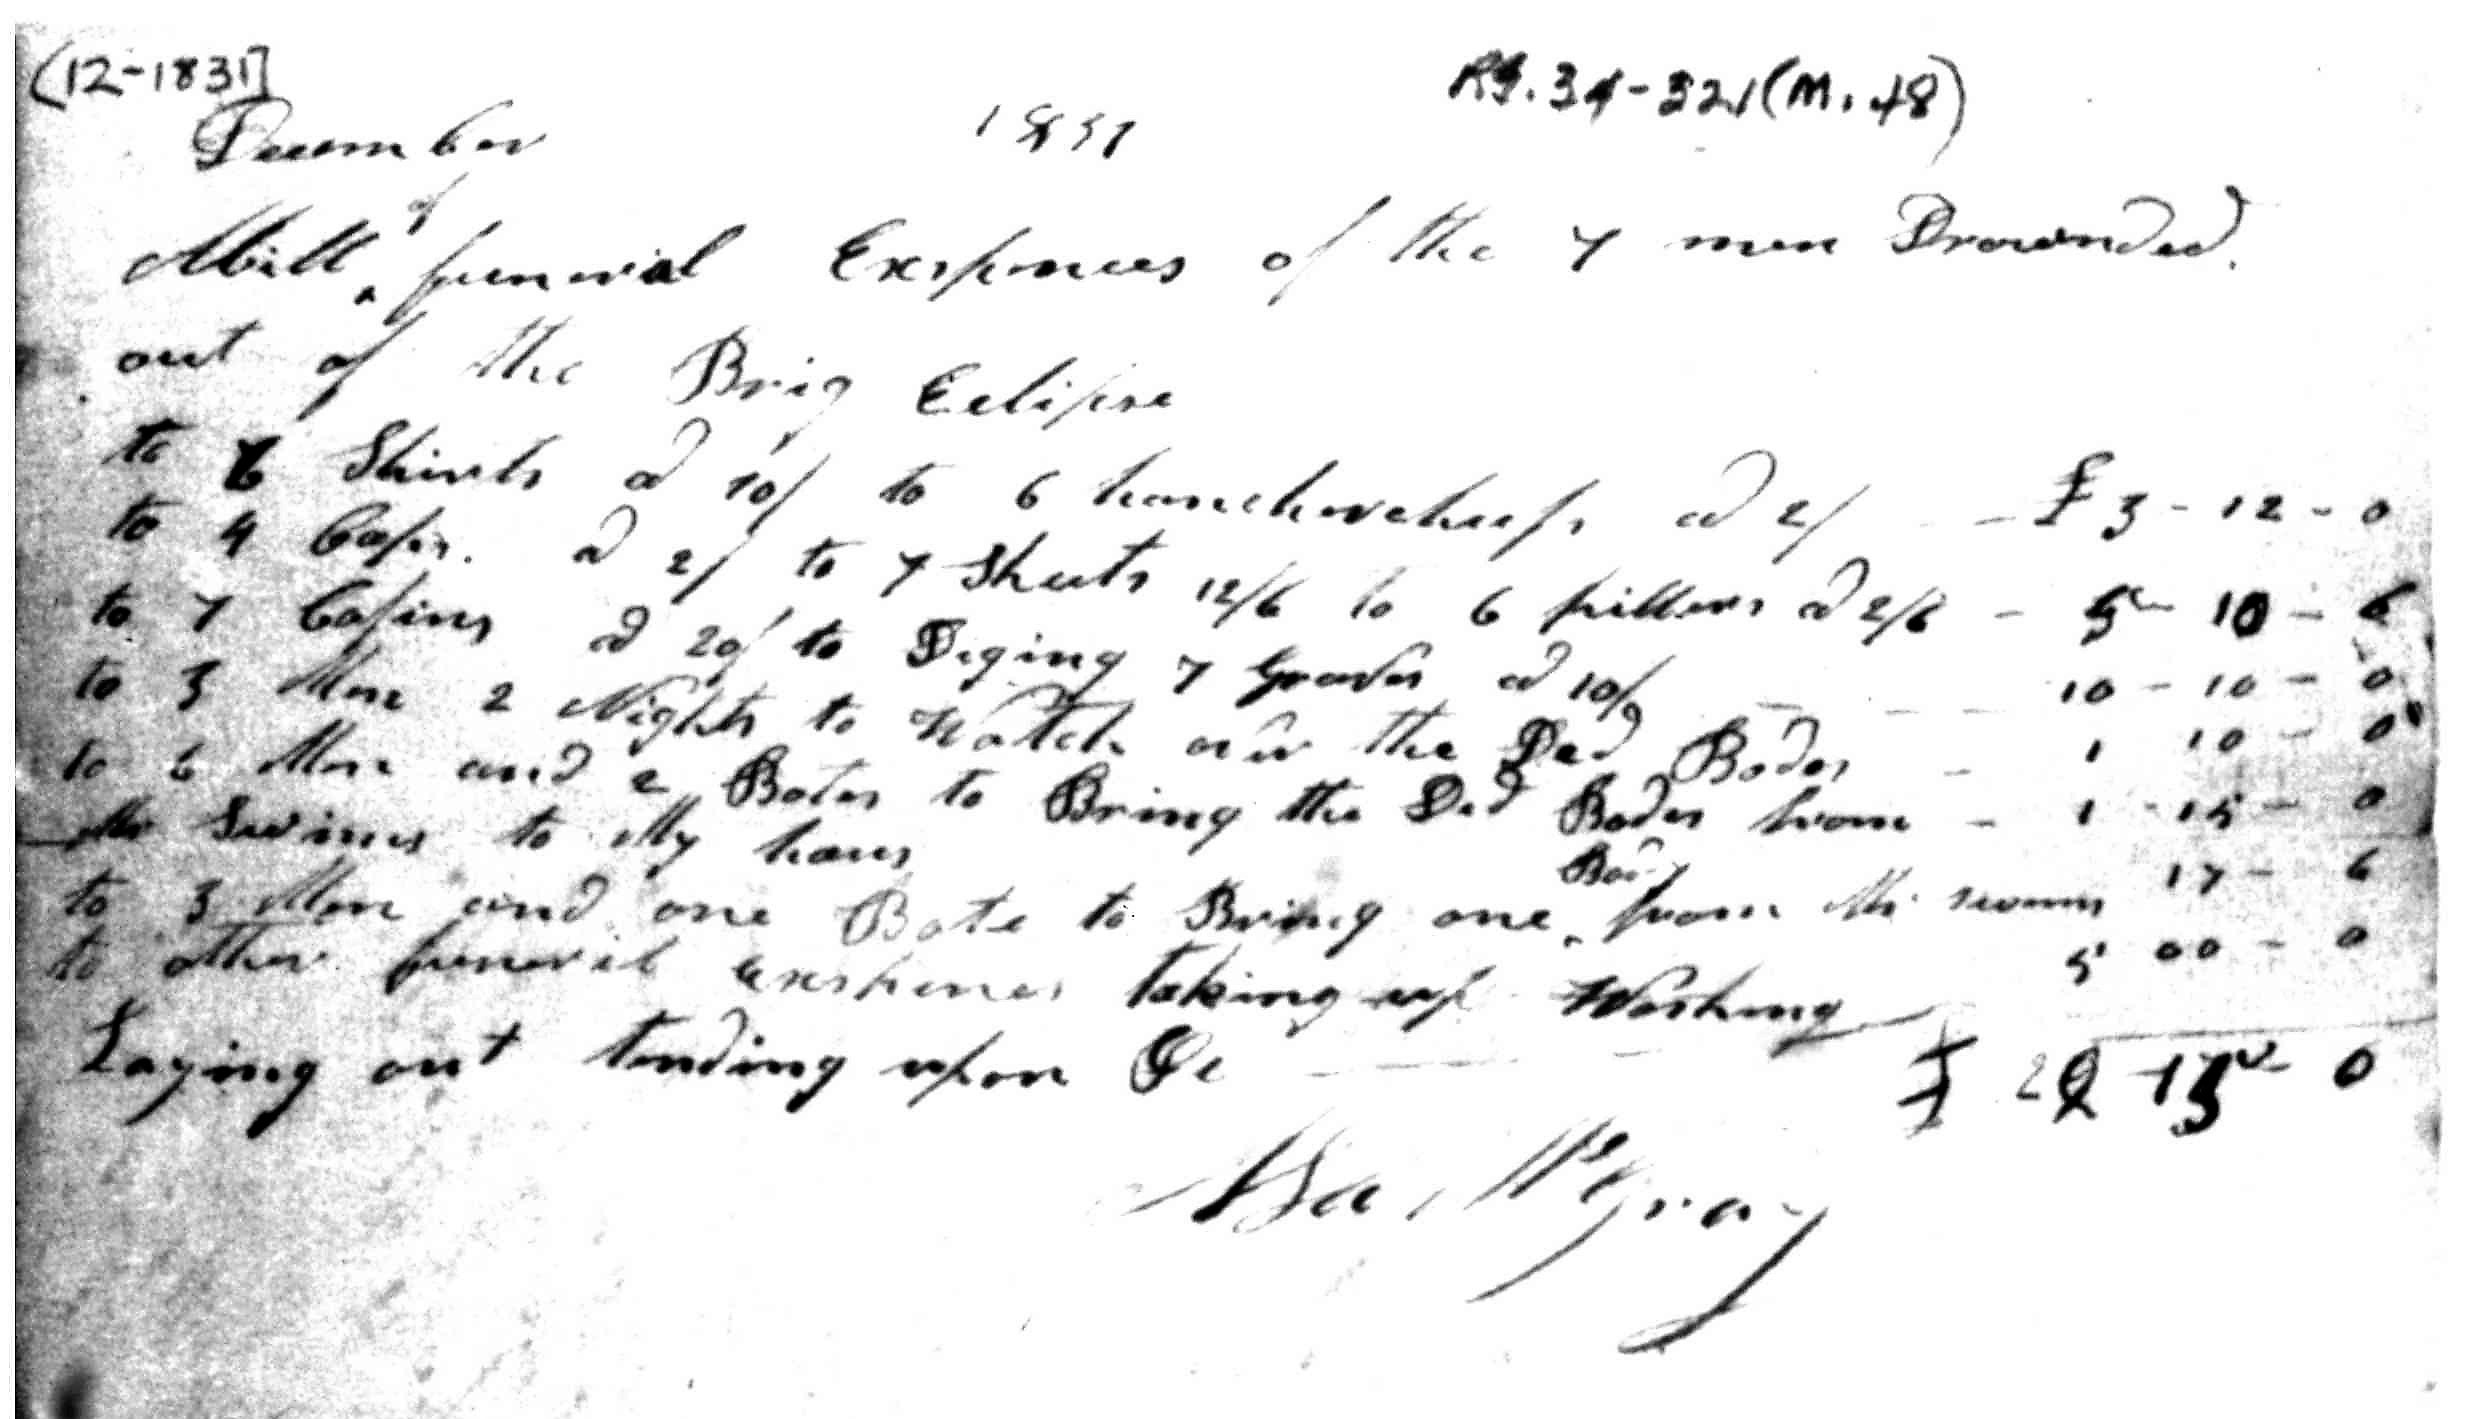 (12-1831]
RG.34-321(M.48)
December 1831
Abill of funeral Exspences of the 7 men Drownded.
out of the Brig Eclipse
to 6 Shirts a 10/ to 6 hanchercheefs a 2/ - - £3-12-0
to 4 Caps. a 2/ to 7 Sheets 12/6 to 6 pillers a 2/6 - 5-10-6
to 7 Cofins a 20/ to Diging 7 Graves a 10/ - - - 10-10-0
to 3 Men 2 Nights to Watch over the Ded Bodes - 1 10-0
to 6 Men and 2 Botes to Bring the Ded Bodes from - 1-15-0
Mr to My hous
to 3 Men and one Bote to Bring one Body from Mr 17-6
to other funeril exspences taking up Washing 5 00-0
Laying out tending upon &c
£ 28 15-0
Asa McGray